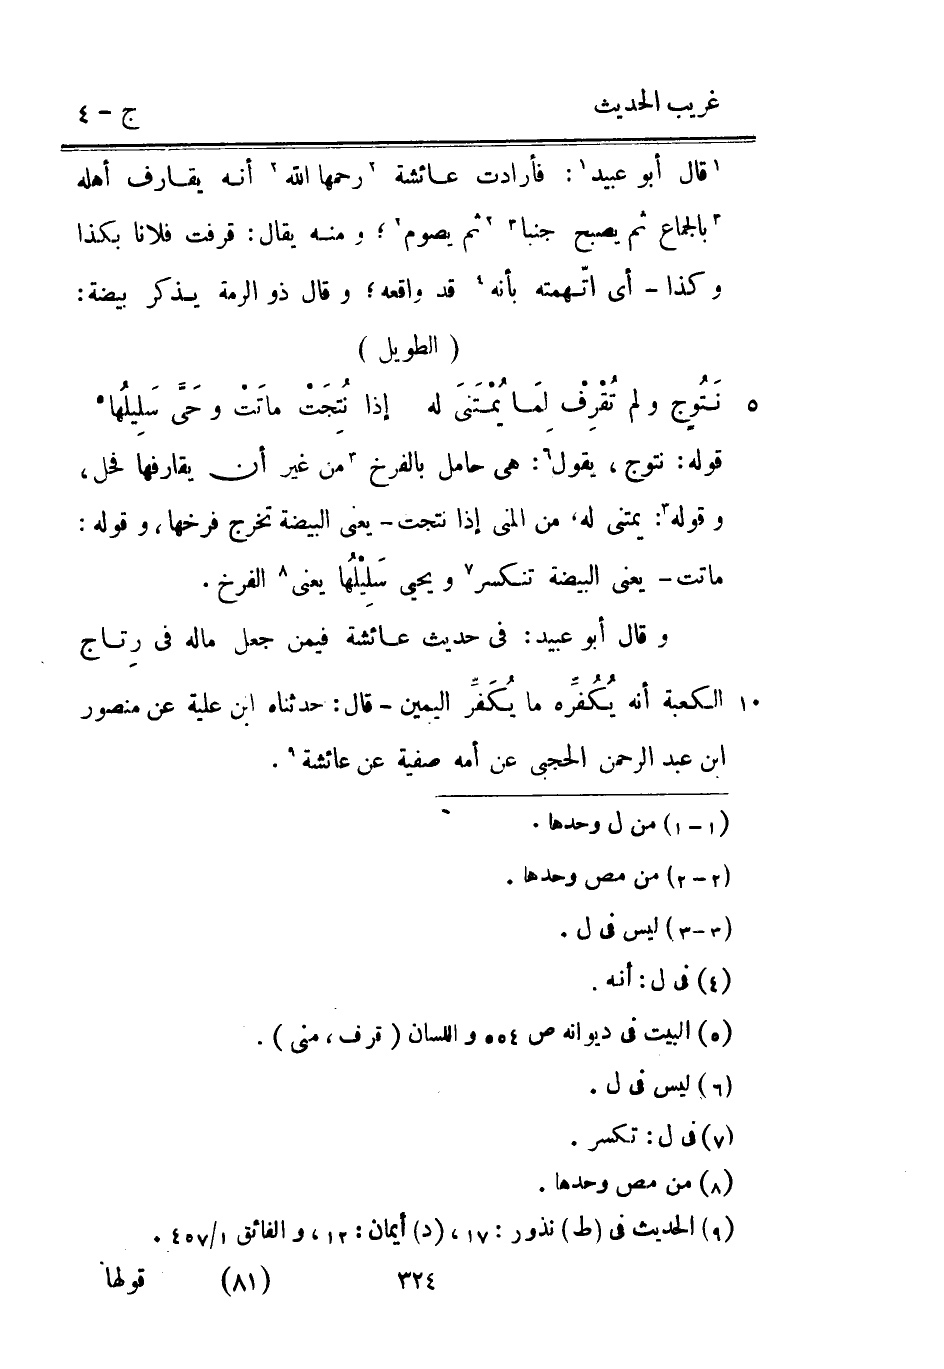 غريب الحديث ج - ٤
١قال أبو عبيد١: فأرادت عائشة ٢رحمها الله٢ أنه يقارف أهله
٣بالجماع ثم يصبح جنبا٣ ٢ثم يصوم٢؛ و منه يقال: قرفت فلانا بكذا
و كذا - أى اتّهمته بأنه٤ قد واقعه؛ و قال ذو الرمة يذكر بيضة:
( الطويل )
٥ نَتُوجٍ و لم تُقْرِفْ لِمَا يُمْتَنَى له إذا نُتِجَتْ ماتَتْ و حَىَّ سَلِيلُها٥
قوله: نتوج، يقول٦: هى حامل بالفرخ ٣من غير أن يقارفها فحل،
و قوله٣: يمتنى له، من المنى إذا نتجت - يعنى البيضة تخرج فرخها، و قوله:
ماتت - يعنى البيضة تنكسر٧ و يحيى سَلِيْلُها يعنى٨ الفرخ.
و قال أبو عبيد: فى حديث عائشة فيمن جعل ماله فى رِتاج
١٠ الكعبة أنه يُكُفِّرُه ما يُكَفِّرُ اليمين - قال: حدثناه ابن علية عن منصور
ابن عبد الرحمن الحجبى عن أمه صفية عن عائشة٩.
(١-١) من ل وحدها.
(٢-٢) من مص وحدها.
(٣-٣) ليس فى ل.
(٤) فى ل: أنه.
(٥) البيت فى ديوانه ص ٥٥٤ و اللسان ( قرف، منى ).
(٦) ليس فى ل.
(٧) فى ل: تكسر.
(٨) من مص وحدها.
(٩) الحديث فى (ط) نذور: ١٧، (د) أيمان: ١٢، و الفائق ١/٤٥٧.
٣٢٤ (٨١) قولها